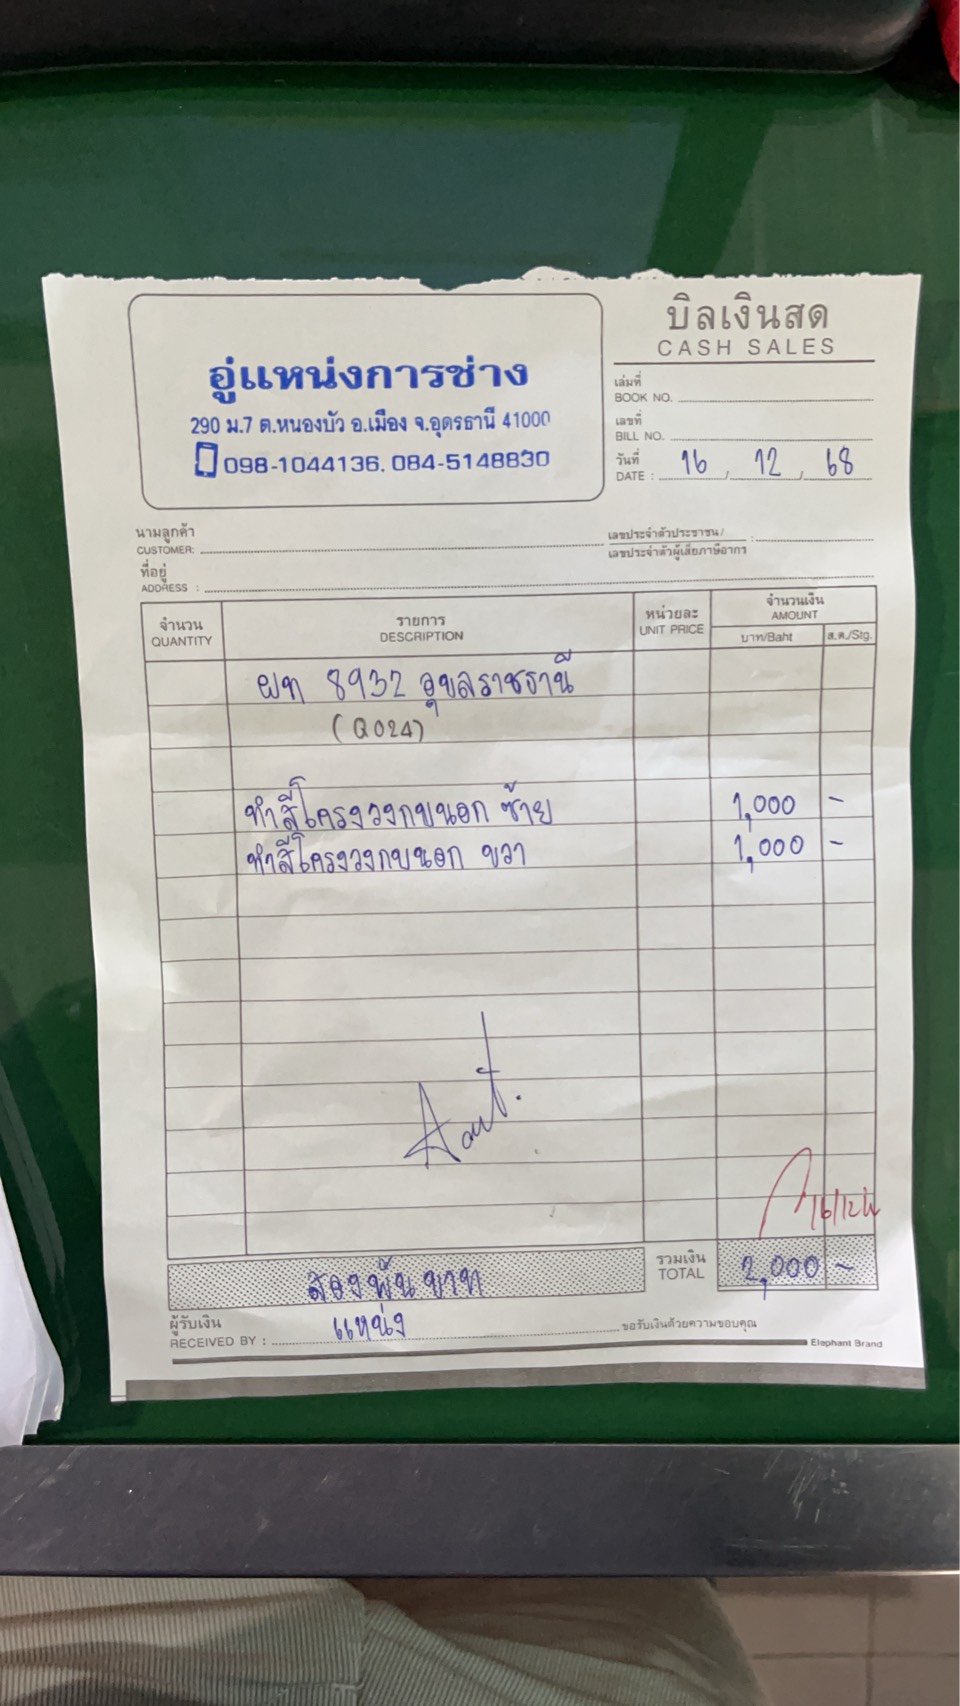 อู่แหน่งการช่าง
290 ม.7 ต.หนองบัว อ.เมือง จ.อุดรธานี 41000
098-1044136, 084-5148830
บิลเงินสด
CASH SALES
เล่มที่
BOOK NO.
เลขที่
BILL NO.
วันที่
DATE : 16 / 12 / 68
นามลูกค้า
CUSTOMER:
เลขประจำตัวประชาชน/
เลขประจำตัวผู้เสียภาษีอากร :
ที่อยู่
ADDRESS :
จำนวน
QUANTITY
รายการ
DESCRIPTION
หน่วยละ
UNIT PRICE
จำนวนเงิน
AMOUNT
บาท/Baht ส.ต./Stg.
ผท 8932 อุบลราชธานี
(Q024)
ทำสีโครงวงกบนอก ซ้าย 1,000 -
ทำสีโครงวงกบนอก ขวา 1,000 -
16/12/
สองพันบาท
รวมเงิน
TOTAL 2,000 -
ผู้รับเงิน
RECEIVED BY : แหน่ง
ขอรับเงินด้วยความขอบคุณ
Elephant Brand